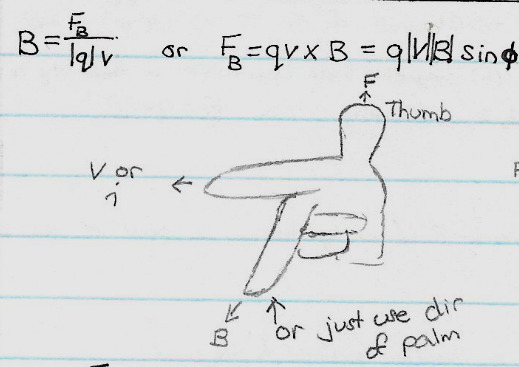 B = F_B / |q|v or F_B = qv x B = q|v||B| sin ϕ
F
Thumb
V or
i
B
or just use dir
of palm